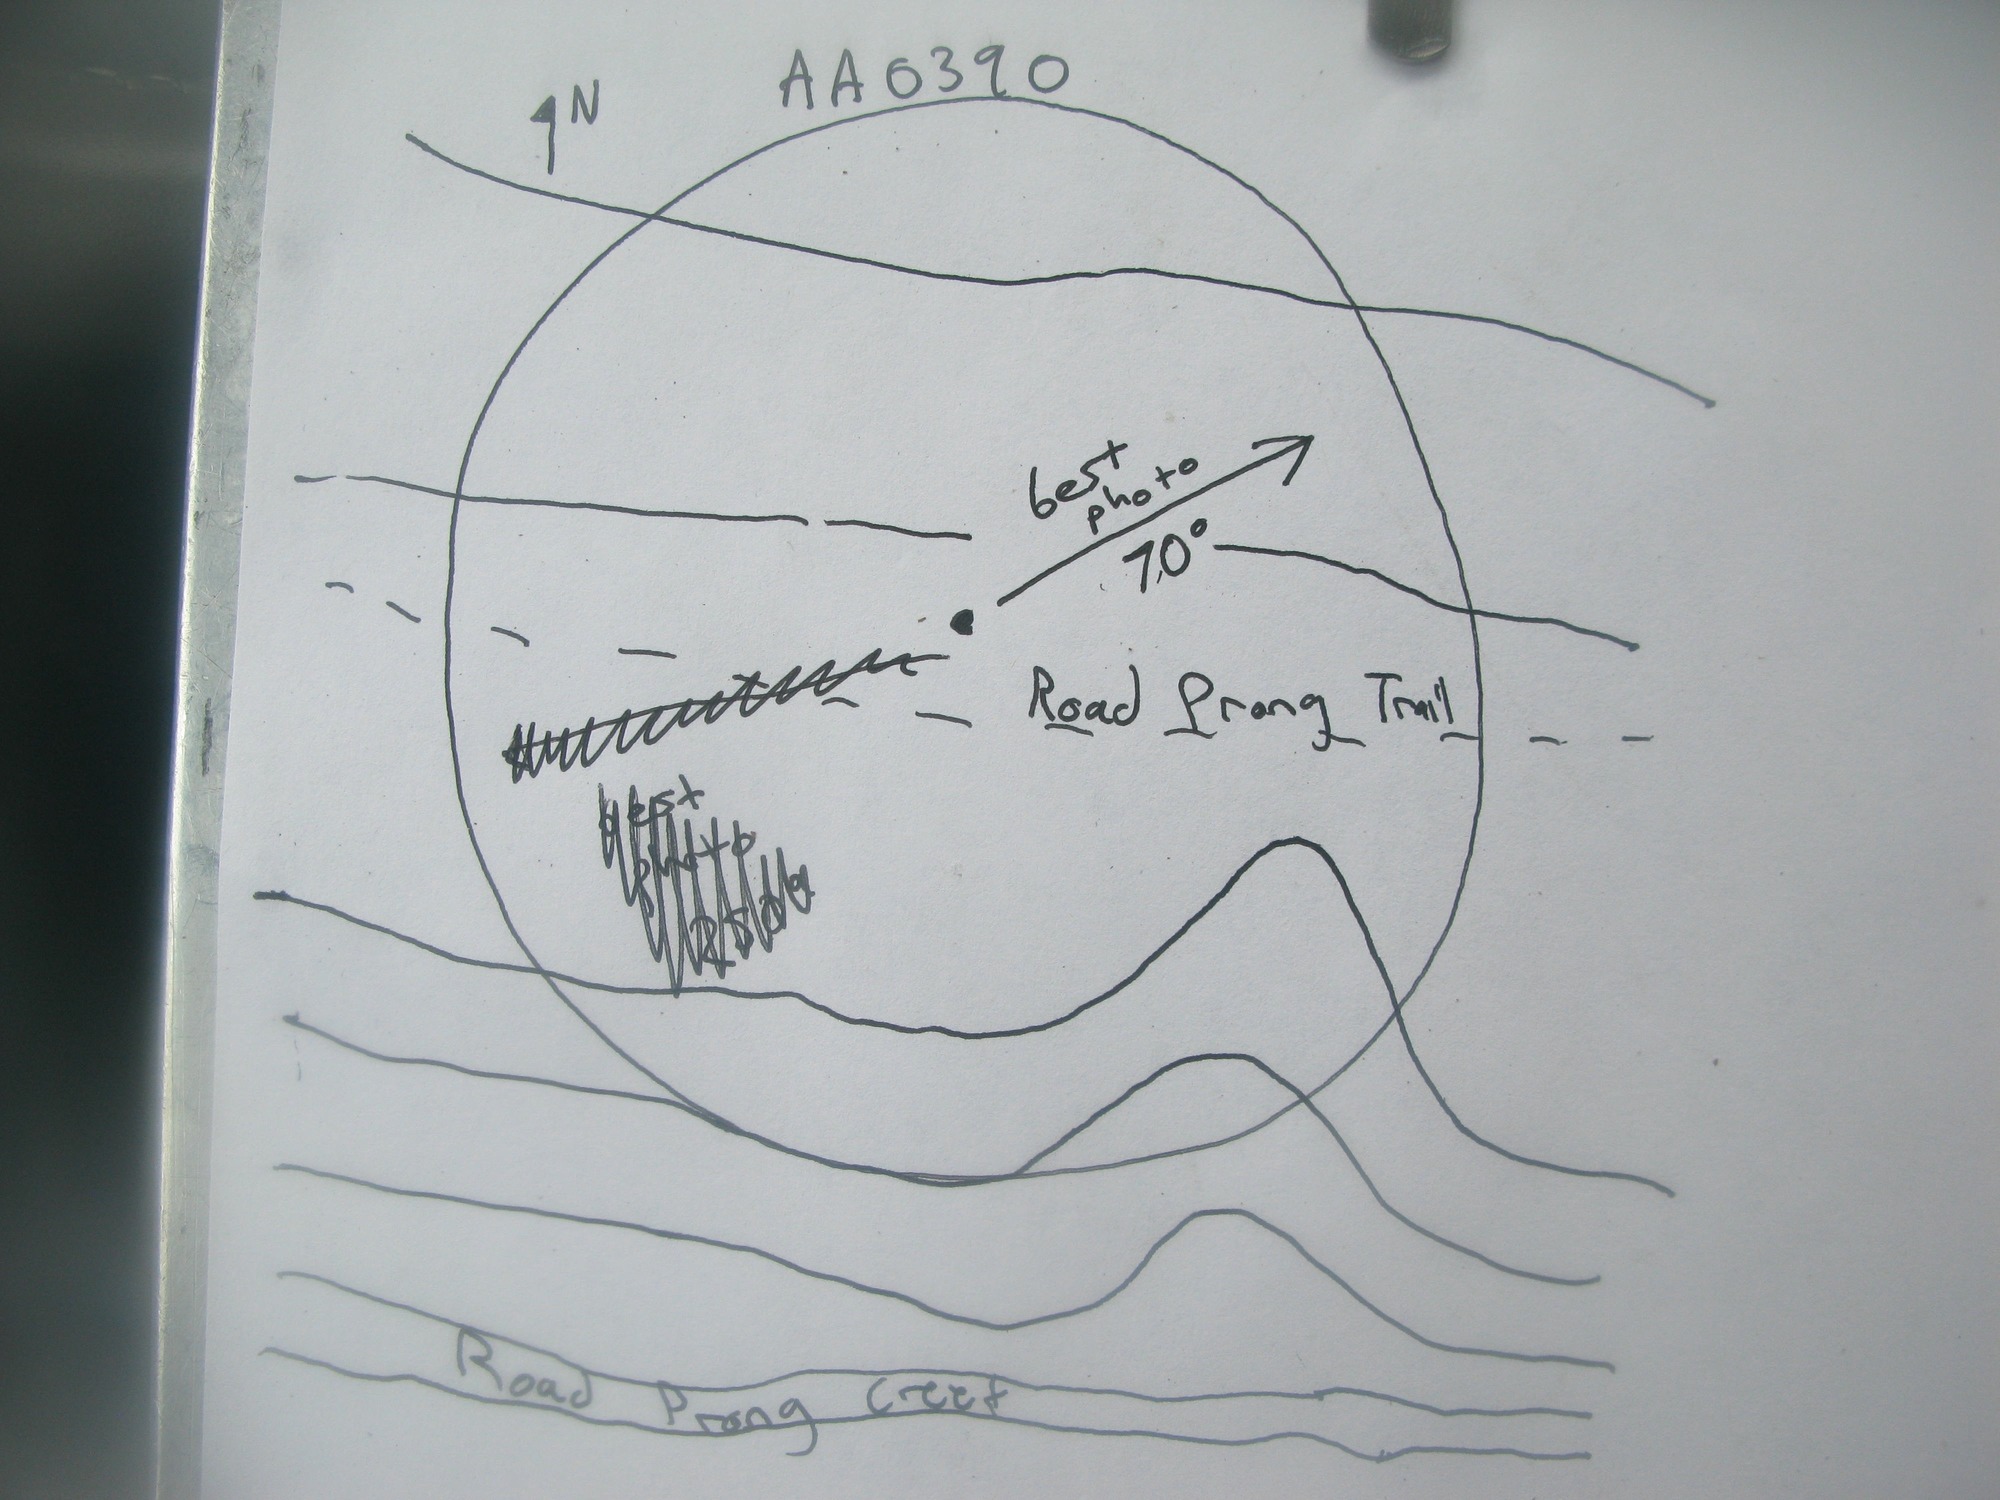 AA0390
N
best
photo
70°
Road Prong Trail
best
photo
Road Prong Creek